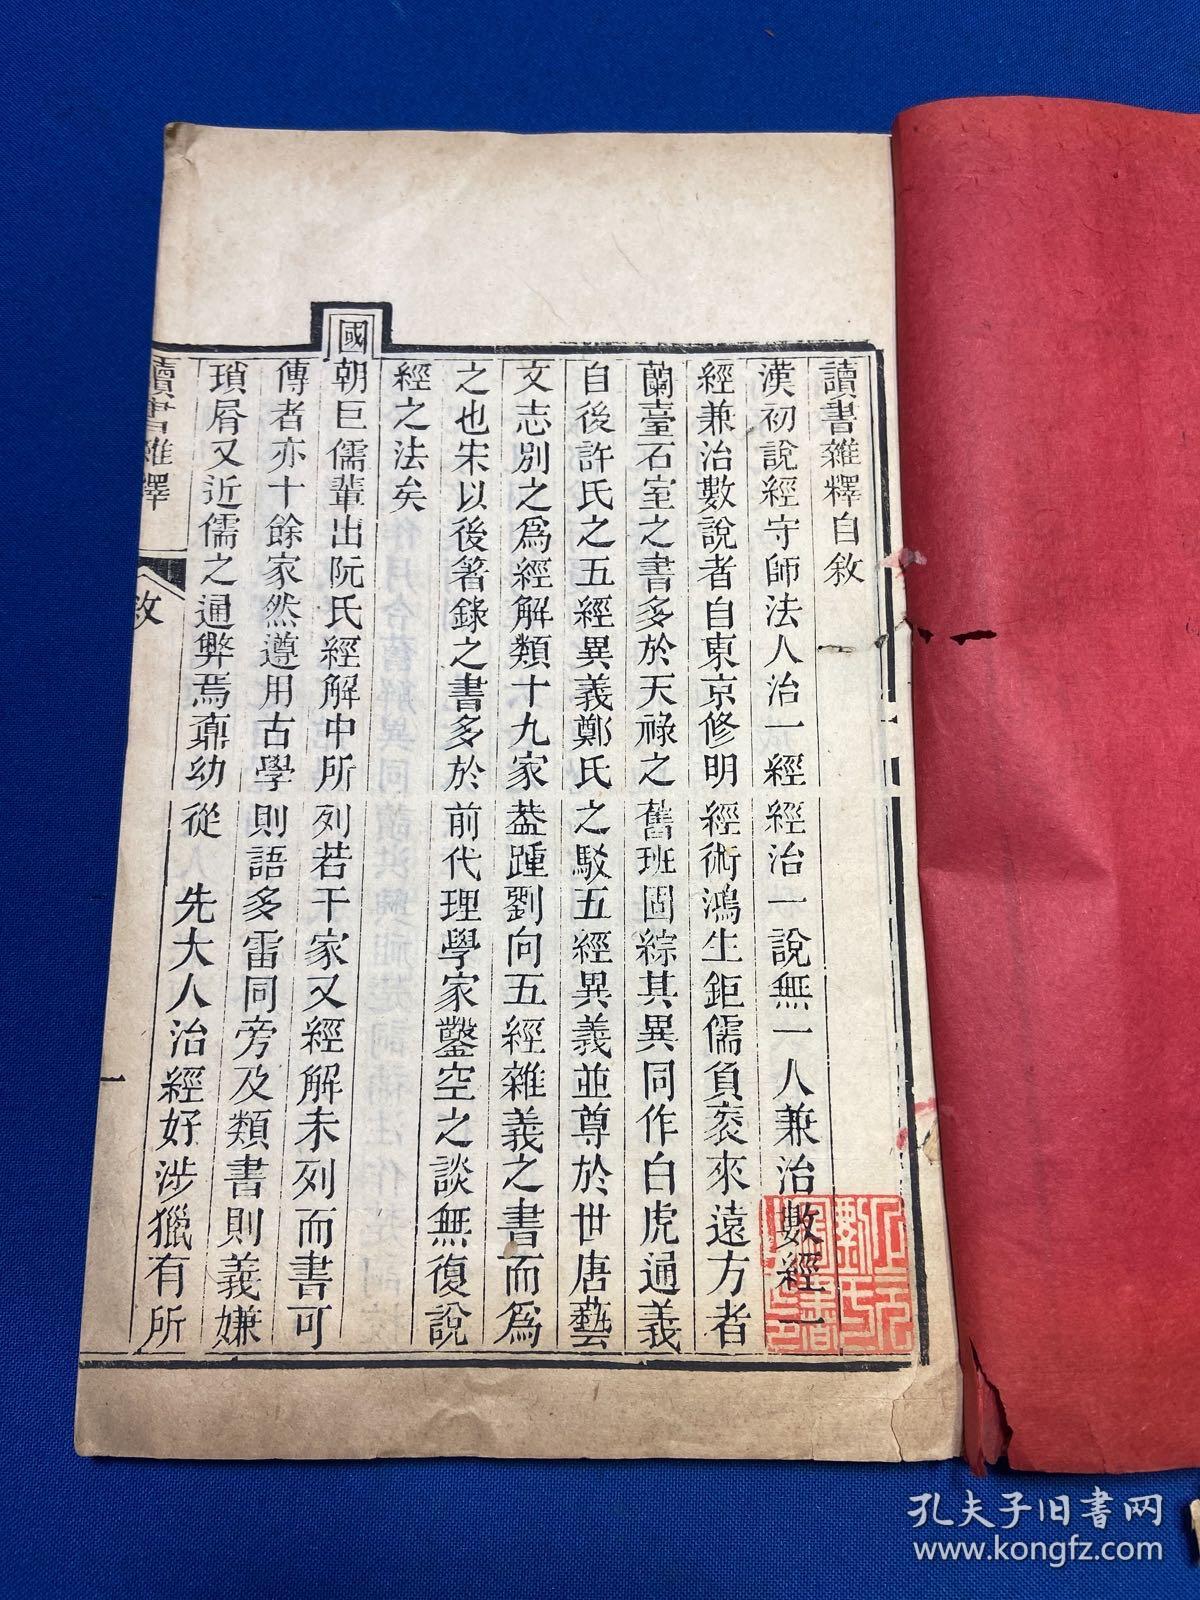 讀書雜釋自敘
漢初說經守師法人治一經經治一說無一人兼治數經一
經兼治數說者自東京修明經術鴻生鉅儒負袠來遠方者
蘭臺石室之書多於天祿之舊班固綜其異同作白虎通義
自後許氏之五經異義鄭氏之駁五經異義並尊於世唐藝
文志別之為經解類十九家葢踵劉向五經雜義之書而為
之也宋以後箸錄之書多於前代理學家鑿空之談無復說
經之法矣
國朝巨儒輩出阮氏經解中所列若干家又經解未列而書可
傳者亦十餘家然遵用古學則語多雷同旁及類書則義嫌
瑣屑又近儒之通弊焉鼒幼從 先大人治經好涉獵有所
讀書雜釋 敘 一
孔夫子旧书网
www.kongfz.com